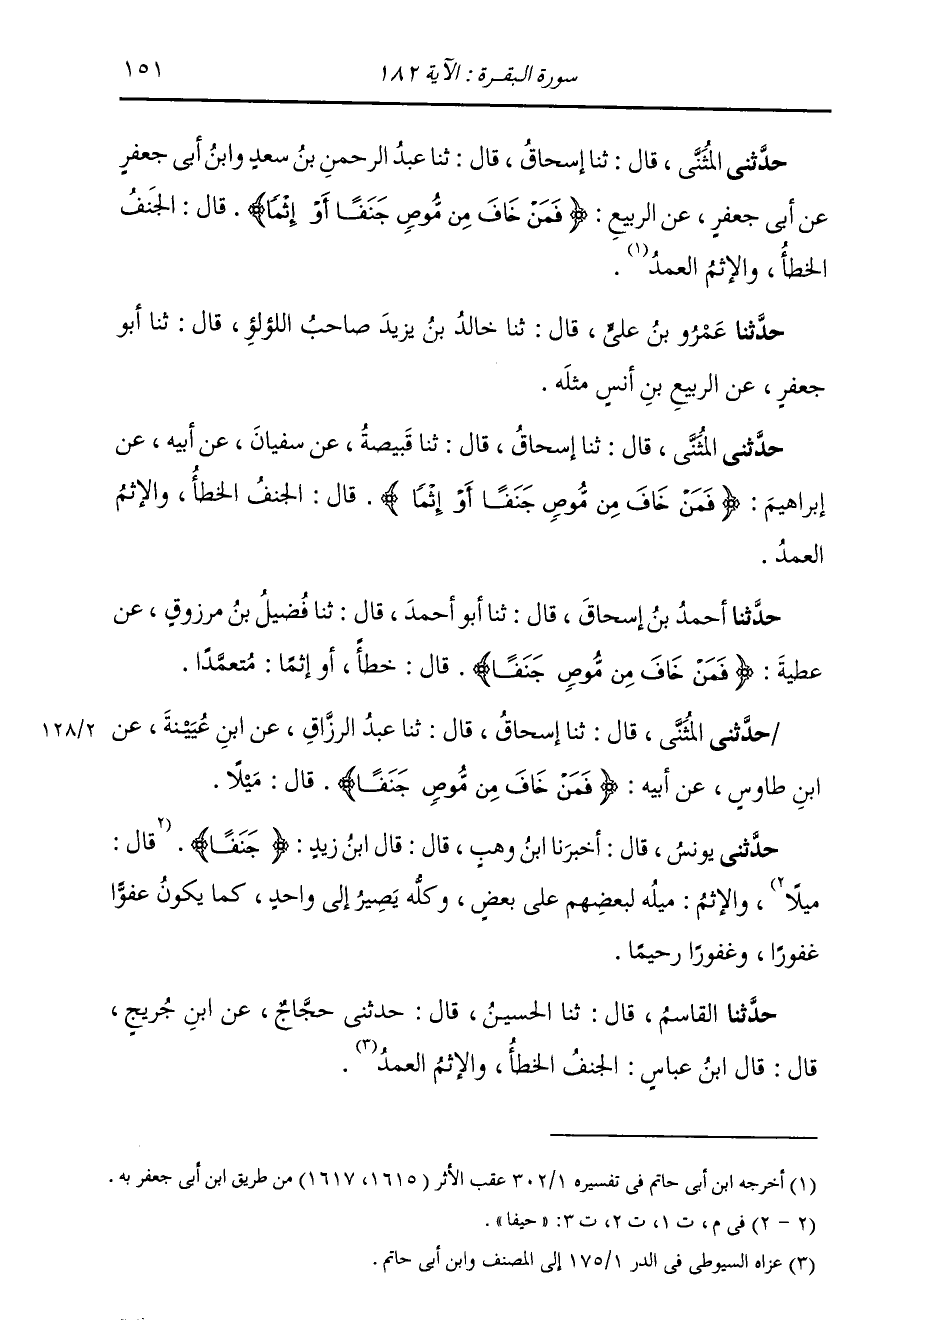 سورة البقرة : الآية ١٨٢ ١٥١
حدَّثنى المُثَنَّى ، قال : ثنا إسحاقُ ، قال : ثنا عبدُ الرحمنِ بنُ سعدٍ وابنُ أبى جعفرٍ
عن أبى جعفرٍ ، عن الربيعِ : ﴿ فَمَنْ خَافَ مِن مُّوصٍ جَنَفًا أَوْ إِثْمًا﴾ . قال : الجَنَفُ
الخطأُ ، والإثمُ العمدُ(١) .
حدَّثنا عَمْرُو بنُ علىٍّ ، قال : ثنا خالدُ بنُ يزيدَ صاحبُ اللؤلؤِ ، قال : ثنا أبو
جعفرٍ ، عن الربيعِ بنِ أنسٍ مثلَه .
حدَّثنى المُثَنَّى ، قال : ثنا إسحاقُ ، قال : ثنا قَبيصةُ ، عن سفيانَ ، عن أبيه ، عن
إبراهيمَ : ﴿ فَمَنْ خَافَ مِن مُّوصٍ جَنَفًا أَوْ إِثْمًا ﴾ . قال : الجنفُ الخطأُ ، والإثمُ
العمدُ .
حدَّثنا أحمدُ بنُ إسحاقَ ، قال : ثنا أبو أحمدَ ، قال : ثنا فُضيلُ بنُ مرزوقٍ ، عن
عطيةَ : ﴿ فَمَنْ خَافَ مِن مُّوصٍ جَنَفًا﴾ . قال : خطأً ، أو إثمًا : مُتعمَّدًا .
/حدَّثنى المُثَنَّى ، قال : ثنا إسحاقُ ، قال : ثنا عبدُ الرزَّاقِ ، عن ابنِ عُيَيْنةَ ، عن ١٢٨/٢
ابنِ طاوسٍ ، عن أبيه : ﴿ فَمَنْ خَافَ مِن مُّوصٍ جَنَفًا﴾ . قال : مَيْلًا .
حدَّثنى يونسُ ، قال : أخبرَنا ابنُ وهبٍ ، قال : قال ابنُ زيدٍ : ﴿ جَنَفًا﴾ . (٢قال :
ميلًا٢) ، والإثمُ : ميلُه لبعضِهم على بعضٍ ، وكلُّه يَصِيرُ إلى واحدٍ ، كما يكونُ عفوًّا
غفورًا ، وغفورًا رحيمًا .
حدَّثنا القاسمُ ، قال : ثنا الحسينُ ، قال : حدثنى حجَّاجٌ ، عن ابنِ جُريجٍ ،
قال : قال ابنُ عباسٍ : الجنفُ الخطأُ ، والإثمُ العمدُ(٣) .
(١) أخرجه ابن أبى حاتم فى تفسيره ٣٠٢/١ عقب الأثر (١٦١٥، ١٦١٧) من طريق ابن أبى جعفر به .
(٢ - ٢) فى م ، ت ١، ت ٢، ت ٣: « حيفا» .
(٣) عزاه السيوطى فى الدر ١٧٥/١ إلى المصنف وابن أبى حاتم .